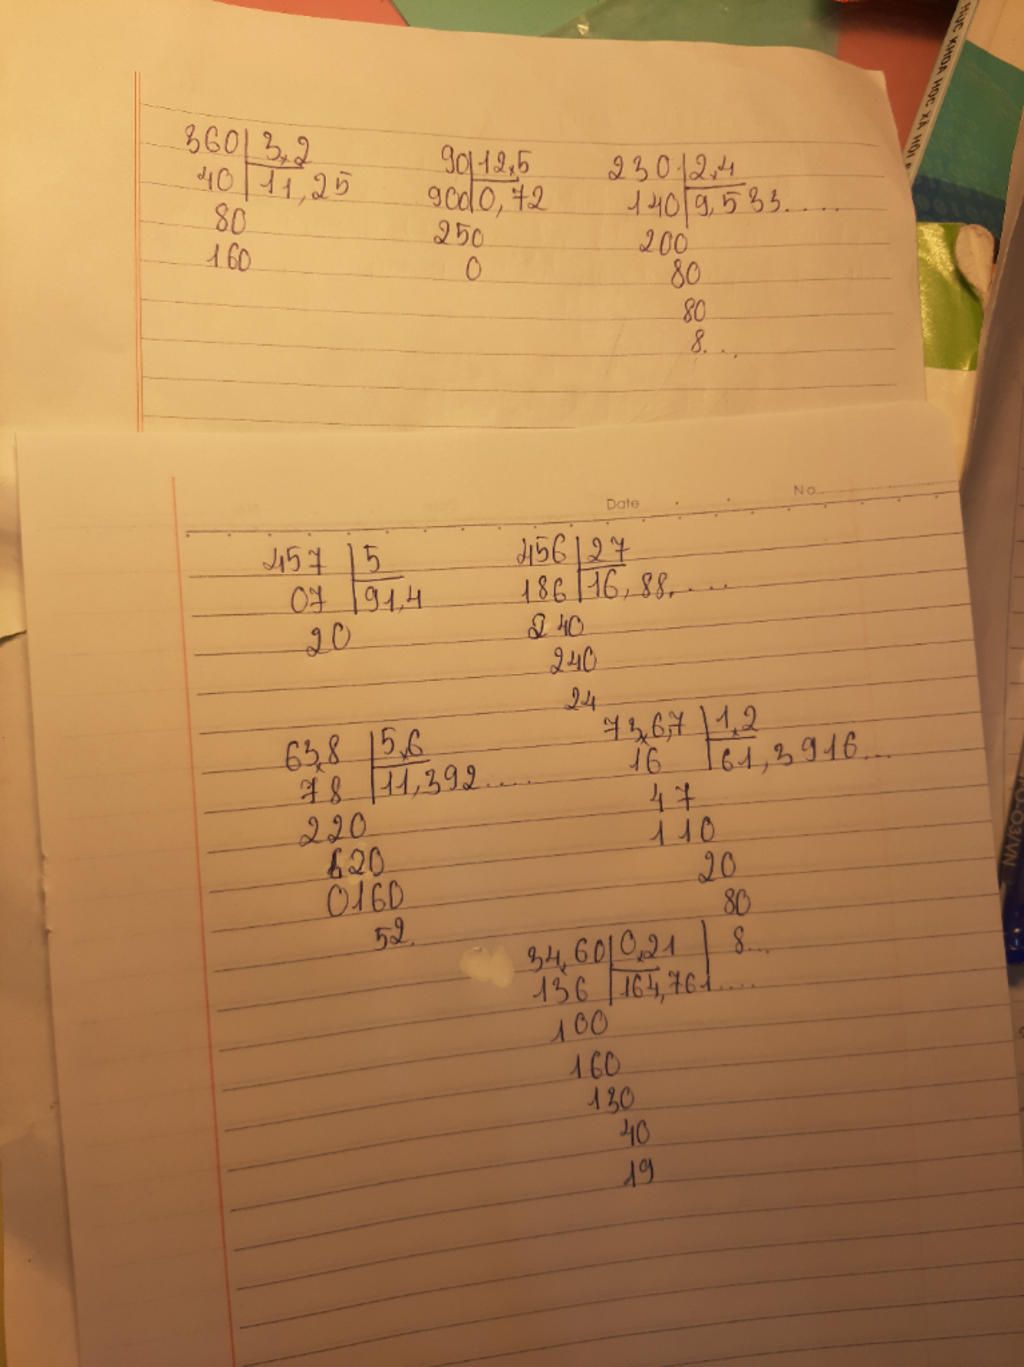 HỌC KHOA HỌC XÃ HỘI
360 3,2
40 11,25
80
160
90 12,5
900 0,72
250
0
230 2,4
140 9,533....
200
80
80
8...
Date No
457 5
07 91,4
20
456 27
186 16,88.....
240
240
24
63,8 5,6
78 11,392.....
220
520
0160
52.
73,6,7 1,2
16 61,3916...
47
110
20
80
8...
34,60 0,21
136 164,761....
100
160
130
40
19